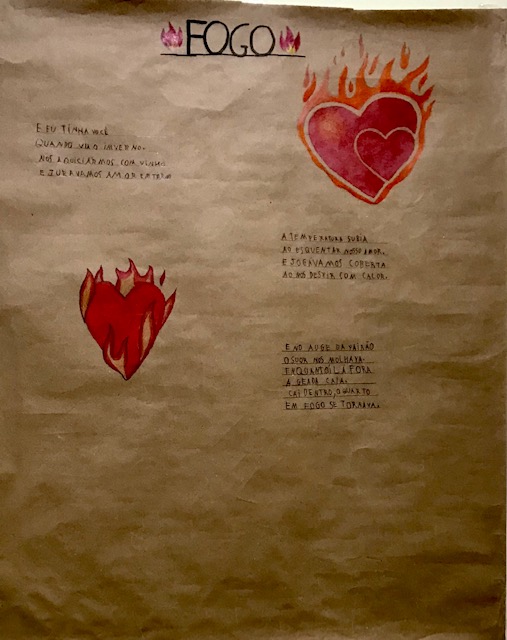 FOGO
E EU TINHA VOCÊ
QUANDO VEIO INVERNO.
NOS COM VINHO
E JURAVAMOS AMOR ETERNO
A TEMPERATURA SUBIA
AO ESQUENTAR NOSSO AMOR.
E JOGÁVAMOS COBERTA
AO NOS DESPIR COM CALOR.
E NO AUGE DA PAIXÃO
O SUOR NOS MOLHAVA.
ENQUANTO LÁ FORA
A GEADA CAIA.
CAI DENTRO, O QUARTO
EM FOGO SE TORNAVA.